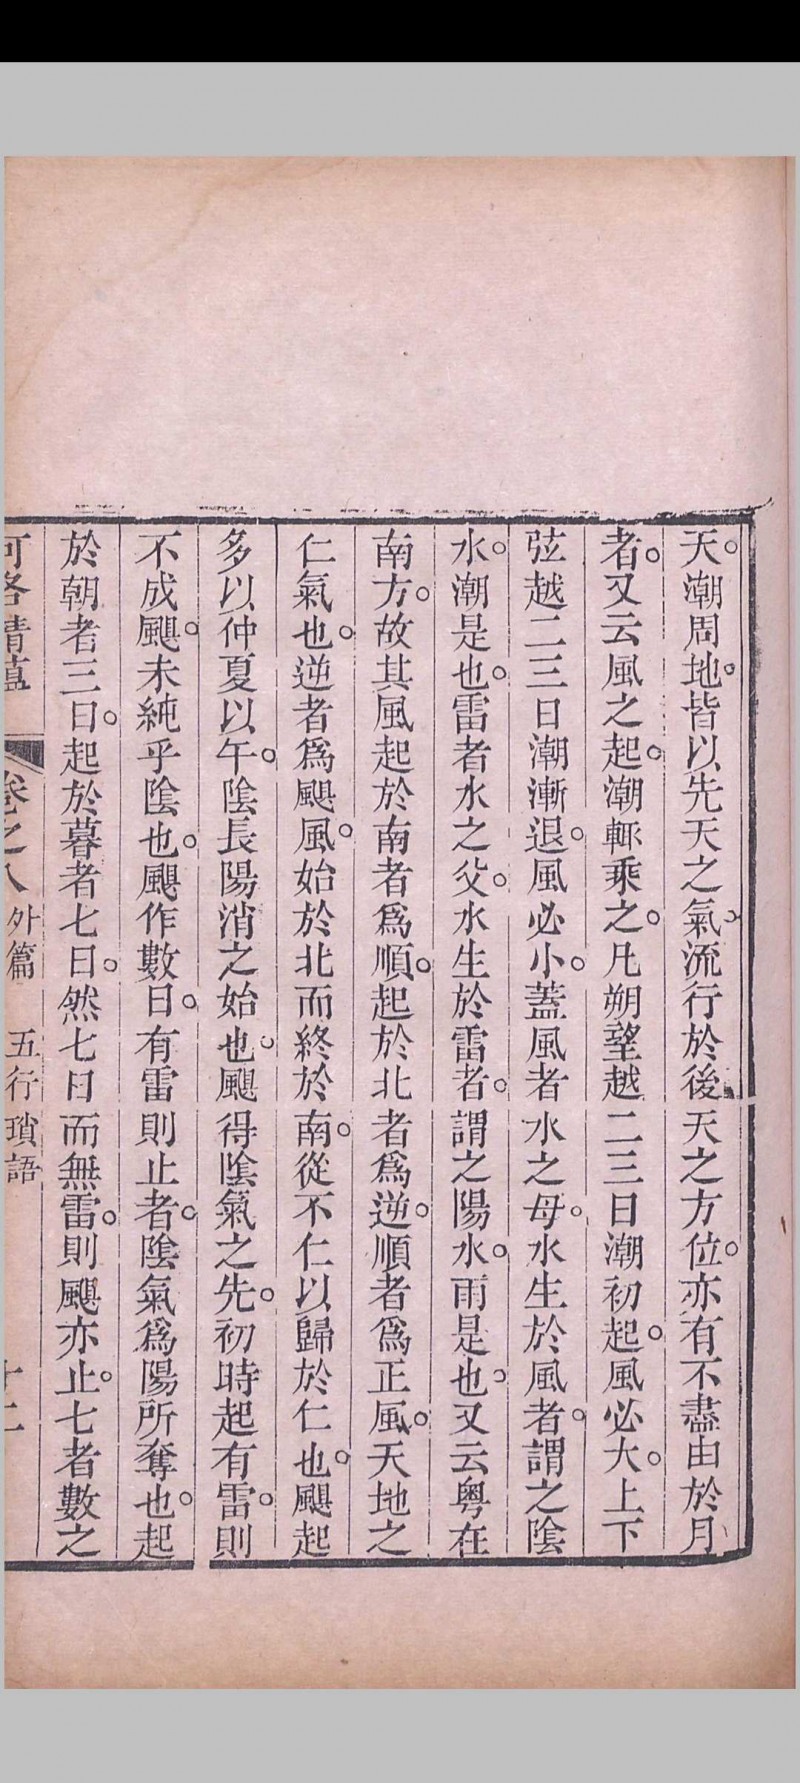 天。潮周地。皆以先天之氣。流行於後天之方位。亦有不盡由於月
者。又云風之起。潮輒乘之。凡朔望越二三日潮初起。風必大。上下
弦越二三日潮漸退。風必小。蓋風者水之母。水生於風者。謂之陰
水。潮是也。雷者水之父。水生於雷者。謂之陽水。雨是也。又云粤在
南方。故其風起於南者為順。起於北者為逆。順者為正風。天地之
仁氣也。逆者為颶風。始於北而終於南。從不仁以歸於仁也。颶起
多以仲夏以午。陰長陽消之始也。颶得陰氣之先。初時起有雷。則
不成颶。未純乎陰也。颶作數日。有雷則止者。陰氣為陽所奪也。起
於朝者三日。起於暮者七日。然七日而無雷。則颶亦止。七者數之
河洛精蘊 卷之八 外篇 五行瑣語 十二